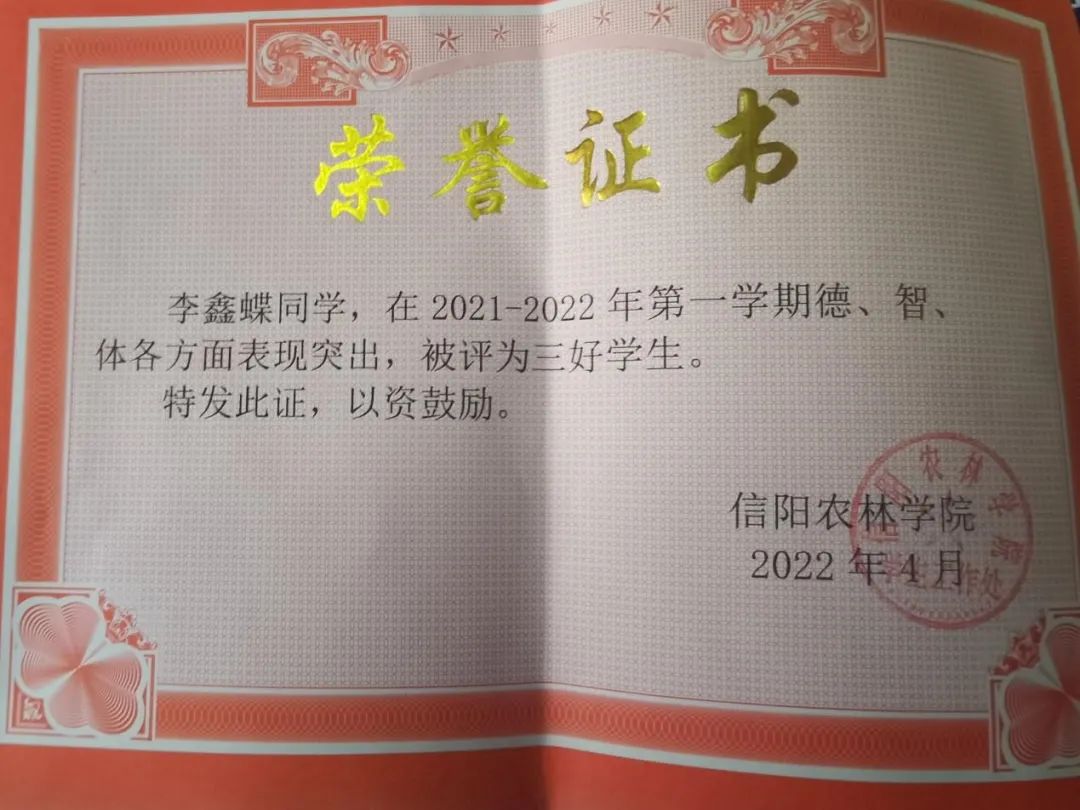 荣誉证书
李鑫蝶同学，在2021-2022年第一学期德、智、
体各方面表现突出，被评为三好学生。
特发此证，以资鼓励。
信阳农林学院
2022年4月
信阳农林学院
学生工作处